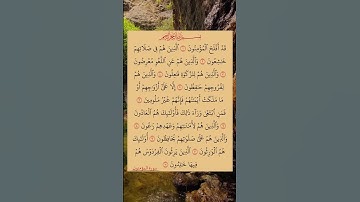 بسم الله الرحمن الرحيم
قَدْ أَفْلَحَ ٱلْمُؤْمِنُونَ ۝١ ٱلَّذِينَ هُمْ فِى صَلَاتِهِمْ
خَـٰشِعُونَ ۝٢ وَٱلَّذِينَ هُمْ عَنِ ٱللَّغْوِ مُعْرِضُونَ
۝٣ وَٱلَّذِينَ هُمْ لِلزَّكَوٰةِ فَـٰعِلُونَ ۝٤ وَٱلَّذِينَ هُمْ
لِفُرُوجِهِمْ حَـٰفِظُونَ ۝٥ إِلَّا عَلَىٰٓ أَزْوَٰجِهِمْ أَوْ
مَا مَلَكَتْ أَيْمَـٰنُهُمْ فَإِنَّهُمْ غَيْرُ مَلُومِينَ ۝٦
فَمَنِ ٱبْتَغَىٰ وَرَآءَ ذَٰلِكَ فَأُو۟لَـٰٓئِكَ هُمُ ٱلْعَادُونَ
۝٧ وَٱلَّذِينَ هُمْ لِأَمَـٰنَـٰتِهِمْ وَعَهْدِهِمْ رَٰعُونَ ۝٨
وَٱلَّذِينَ هُمْ عَلَىٰ صَلَوَٰتِهِمْ يُحَافِظُونَ ۝٩ أُو۟لَـٰٓئِكَ
هُمُ ٱلْوَٰرِثُونَ ۝١٠ ٱلَّذِينَ يَرِثُونَ ٱلْفِرْدَوْسَ هُمْ
فِيهَا خَـٰلِدُونَ ۝١١
سورة المؤمنون